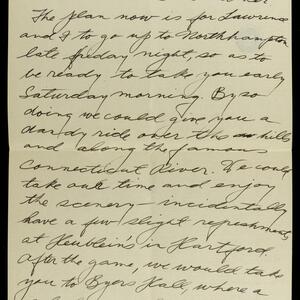 The plan now is for Lawrence
and I to go up to Northhampton
late friday night, so as to
be ready to take you early
Saturday morning. By so
doing we could give you a
dandy ride over the hills
and along the famous
Connecticut River. We could
take our time and enjoy
the scenery – incidentally
have a few slight refreshments
at Heublein's in Hartford.
After the game, we would take
you to Byers Hall, where a